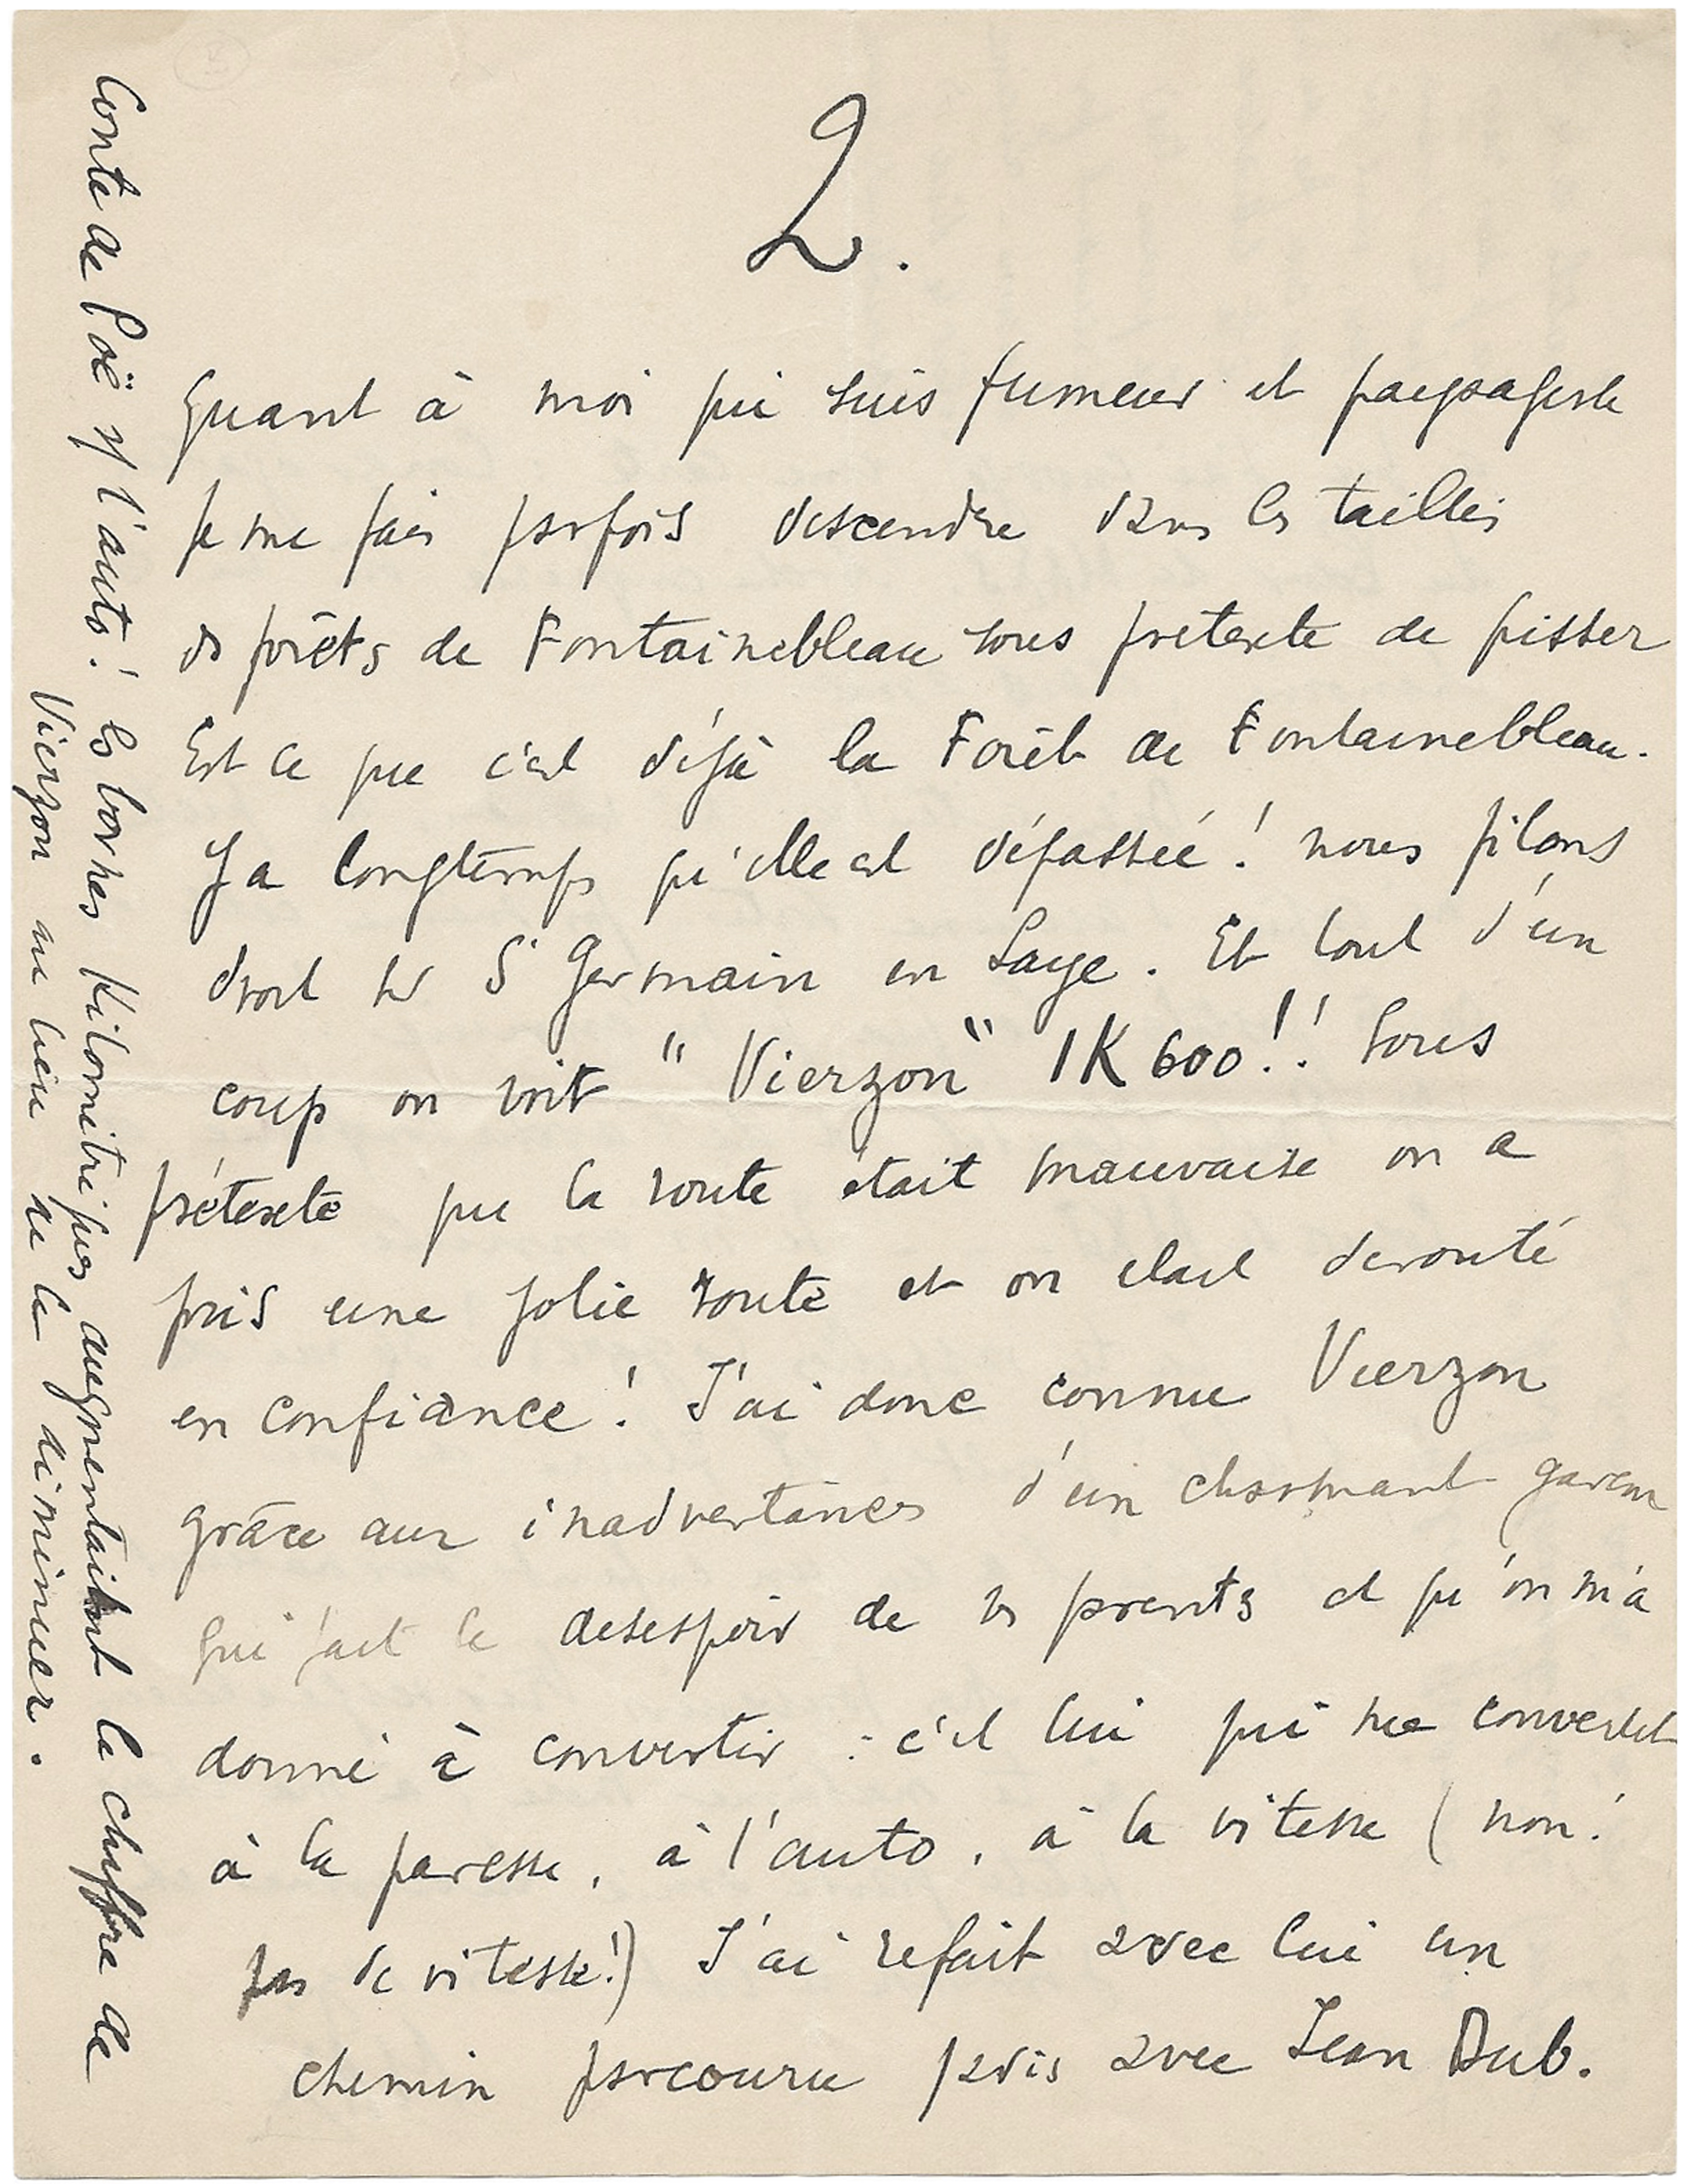 2.
Quant à moi qui suis fumeur et paysagiste
je me fais parfois descendre dans les taillis
des forêts de Fontainebleau sous prétexte de pisser
Est ce que c'est déjà la Forêt de Fontainebleau.
Y a longtemps qu'elle est dépassée ! nous filons
droit sur St Germain en Laye. Et tout d'un
coup on voit "Vierzon" 1K600 !! Sous
prétexte que la route était mauvaise on a
pris une jolie route et on était derouté
en confiance ! J'ai donc connu Vierzon
grâce aux inadvertances d'un charmant garçon
qui fait le desespoir de ses parents et qu'on m'a
donné à convertir : c'est lui qui me convertit
à la paresse, à l'auto, à la vitesse ( non !
pas de vitesse !) J'ai refait avec lui un
chemin parcouru jadis avec Jean Dub.
Conte de Poë sur l'auto ! les bornes Kilométriques augmentaient le chiffre de
Vierzon au lieu de le diminuer.